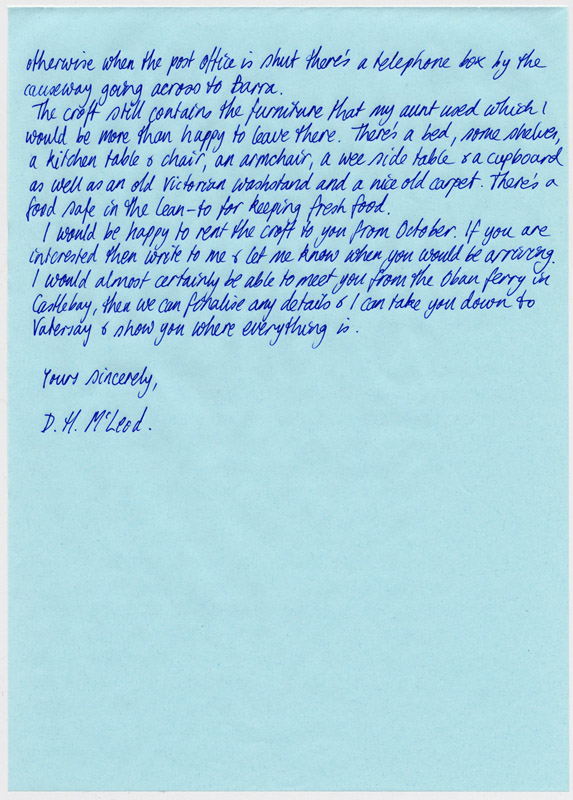 otherwise when the post office is shut there's a telephone box by the
causeway going across to Barra.
The croft still contains the furniture that my aunt used which I
would be more than happy to leave there. There's a bed, some shelves,
a kitchen table & chair, an armchair, a wee side table & a cupboard
as well as an old Victorian washstand and a nice old carpet. There's a
food safe in the lean-to for keeping fresh food.
I would be happy to rent the croft to you from October. If you are
interested then write to me & let me know when you would be arriving.
I would almost certainly be able to meet you from the Oban ferry in
Castlebay, then we can finalise any details & I can take you down to
Vatersay & show you where everything is.
Yours sincerely,
D. H. McLeod.